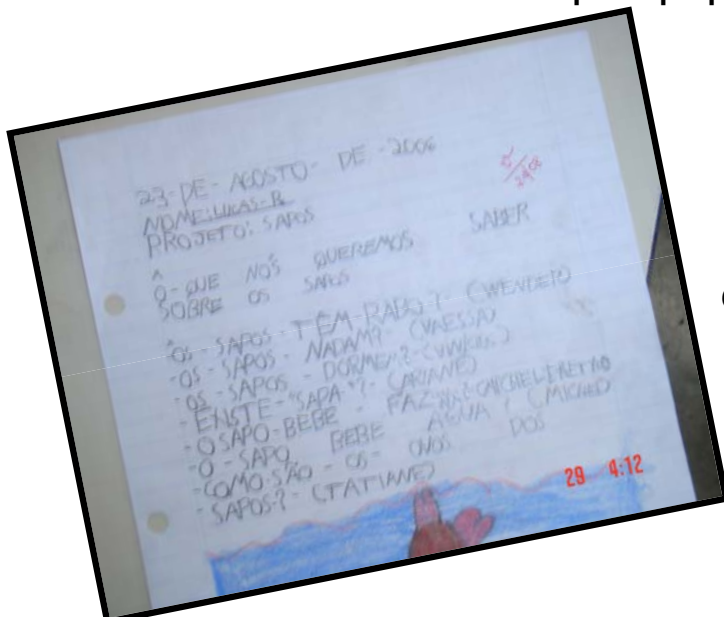 23-DE-AGOSTO-DE-2006
NOME:LUCAS-R.
PROJETO: SAPOS
O-QUE NOS QUEREMOS SABER
SOBRE OS SAPOS
-OS-SAPOS-TÊM RABO? (WENDEL)
-OS-SAPOS-NADAM?-(VAESSA)
-OS-SAPOS-DORMEM?-
-EXISTE-"SAPA"?-(ARIANE)
-O SAPO-BEBE-FAZ
-O-SAPO BEBE ÁGUA? (MICHEL)
-COMO-SÃO-OS-OVOS DOS
-SAPOS-?-(TATIANE)
29 4:12